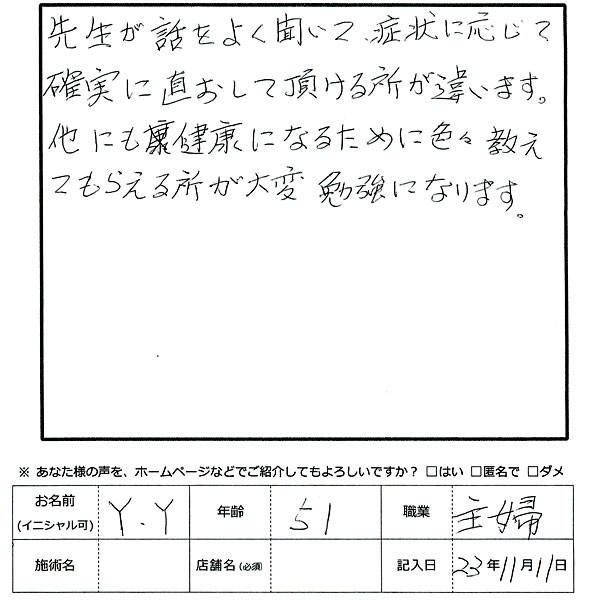 先生が話をよく聞いて、症状に応じて
確実に直おして頂ける所が違います。
他にも健康になるために色々教え
てもらえる所が大変勉強になります。
※ あなた様の声を、ホームページなどでご紹介してもよろしいですか? □はい □匿名で □ダメ
お名前 (イニシャル可) Y.Y 年齢 51 職業 主婦
施術名 店舗名(必須) 記入日 23年11月11日